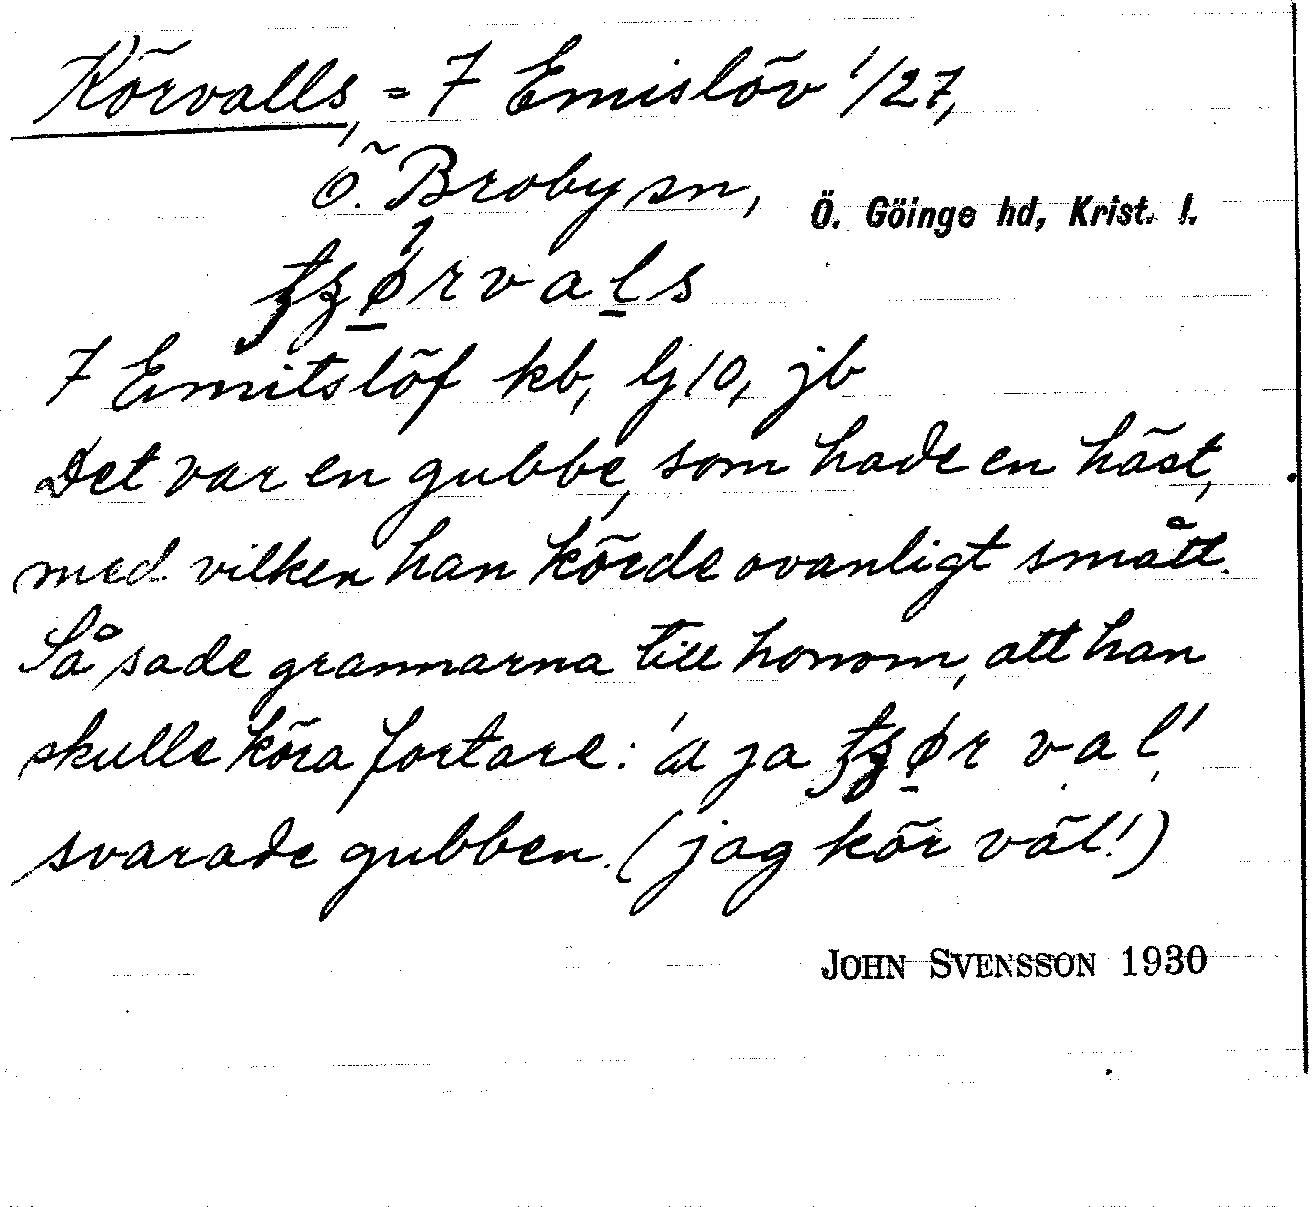 Körvalls, = 7 Emislöv 1/27,
Ö. Broby sn, Ö. Göinge hd, Krist. l.
tʒø̱rvaḻs
7 Emitslöf kb, lj 10, jb
Det var en gubbe, som hade en häst,
med vilken han körde ovanligt smått.
Så sade grannarna till honom, att han
skulle köra fortare: 'a ja tʒø̱r val'
svarade gubben. (jag kör väl!)
JOHN SVENSSON 1930